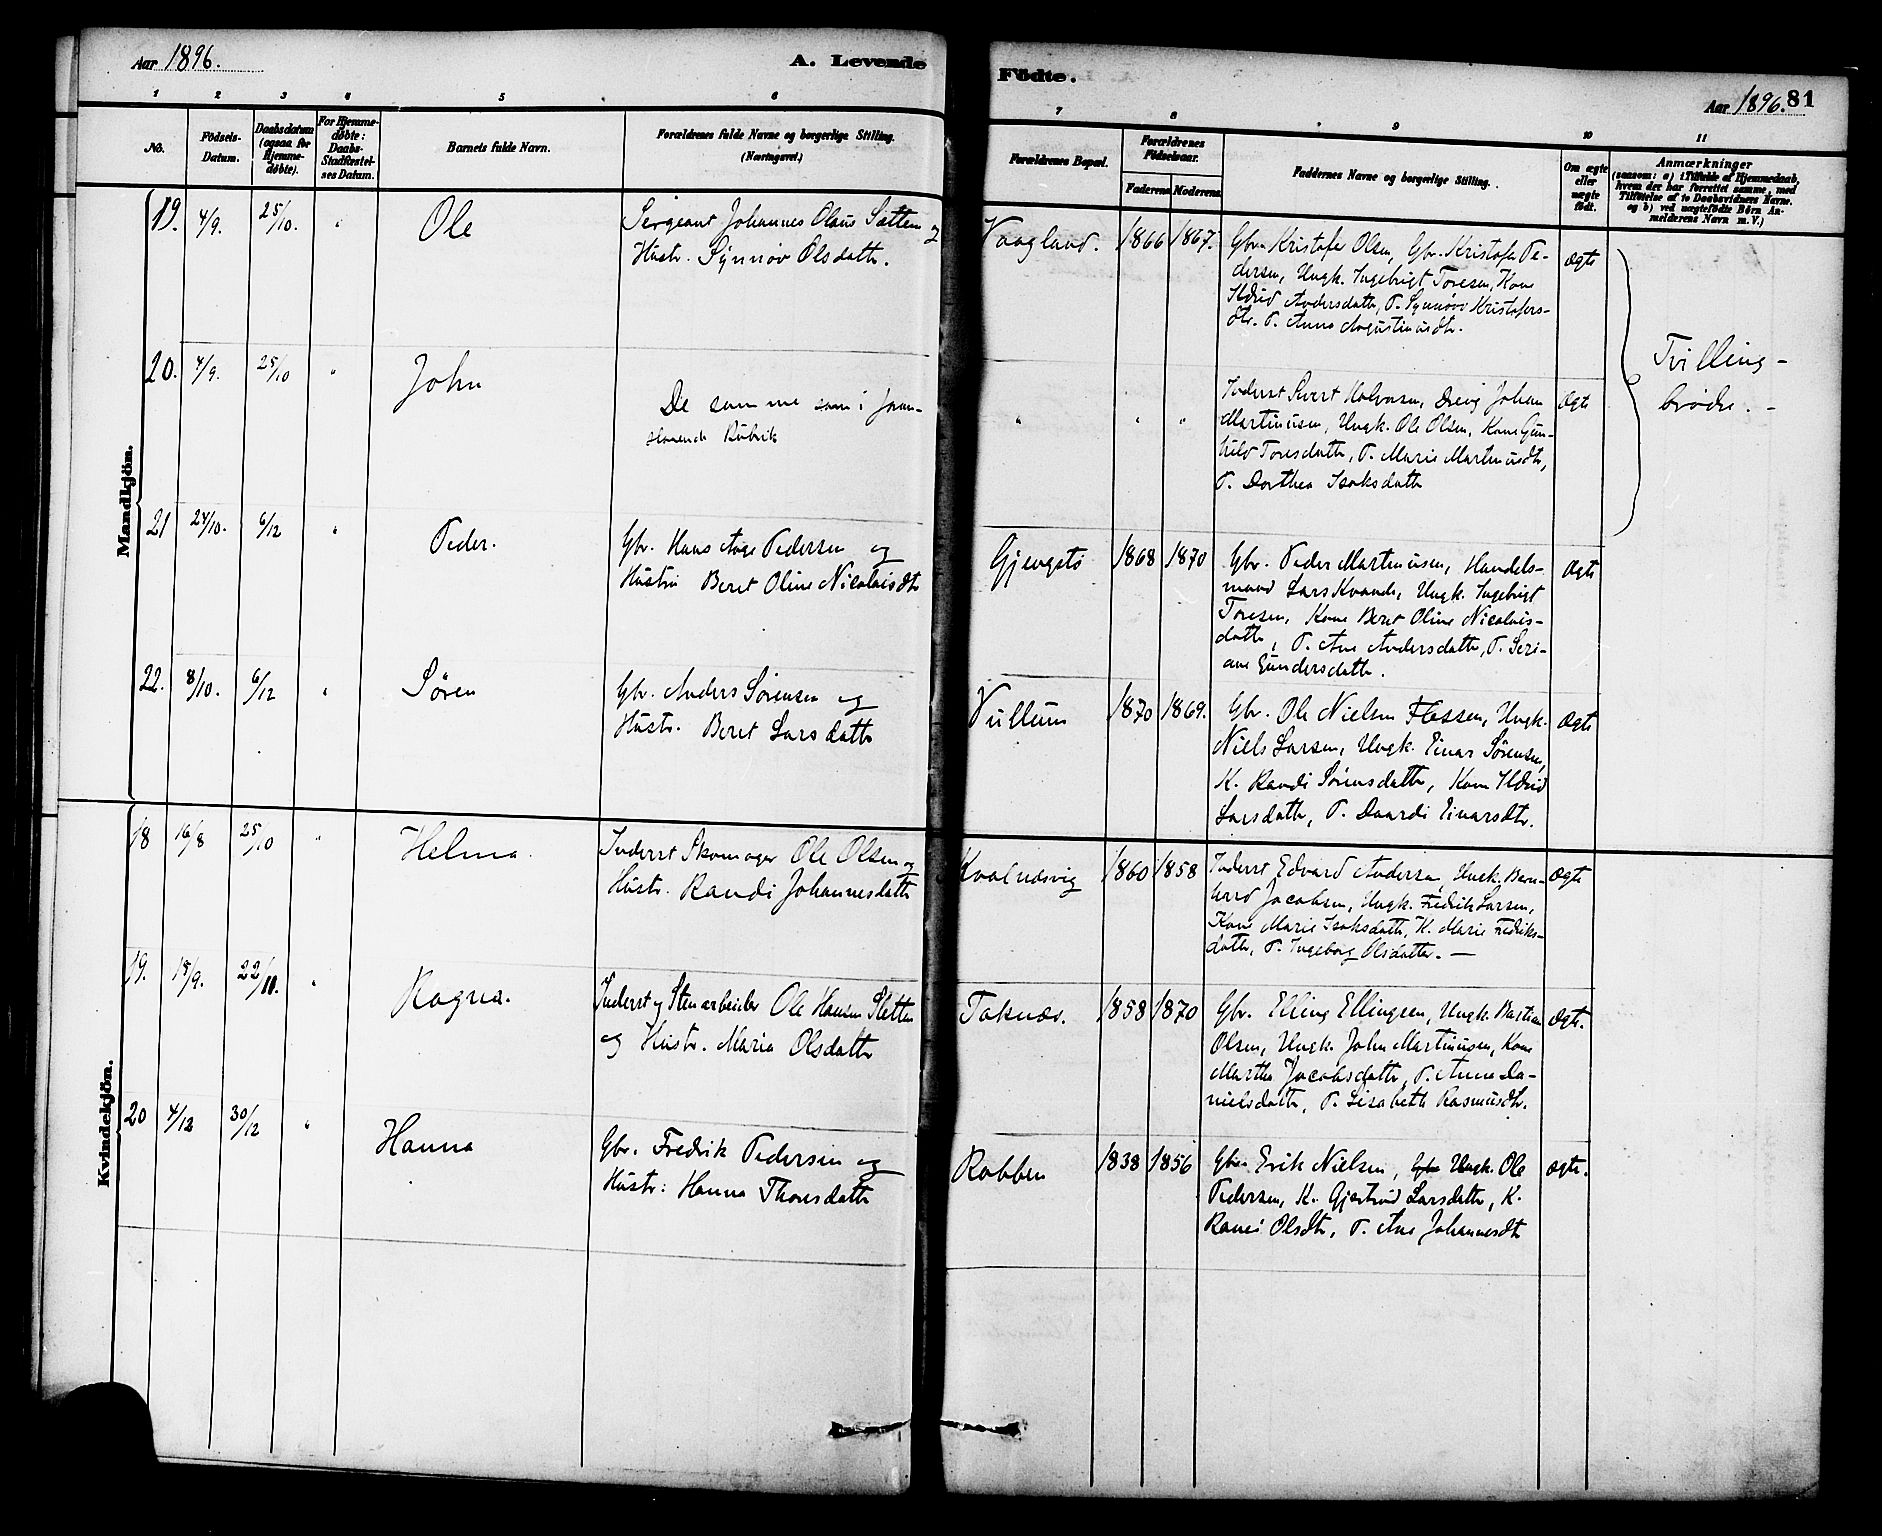 Aar 1896.
A. Levende
Födte.
Aar 1896. 81
1 2 3 4 5 6
7 8 9 10 11
No.
Födsels-
Datum.
Daabsdatum
(ogsaa for
Hjemme-
døbte).
For Hjemme-
døbte:
Daabs-
Stadfæstel-
ses Datum.
Barnets fulde Navn.
Forældrenes fulde Navne og borgerlige Stilling.
(Næringsvei.)
Forældrenes Bopæl.
Forældrenes
Födselsaar.
Faderens Moderens
Faddernes Navne og borgerlige Stilling.
Om ægte
eller
uægte
født.
Anmærkninger
(saasom: a) i Tilfælde af Hjemmedaab,
hvem der har forrettet samme, med
Tilføielse af to Daabsvidners Navne.
og b) ved uægtefødte Børn An-
melderens Navn m. V.)
Mandkjön.
19. 4/9. 25/10. " Ole
Sergeant Johannes Olaus Sætten og
Hustr. Synnøv Olsdattr.
Vaagland. 1866 1867.
Gbr. Kristofer Olsen, Gbr. Kristofer Pe-
dersen, Ungk. Ingebrigt Toresen, Kone
Ildrid Andersdattr, P. Synnøv Kristofers-
dtr. P. Anne Augustinusdtr.
Ægte
20. 4/9. 25/10 " John
De samme som i foran-
staaende Rubrik
" " "
Inderst Sivert Halvorsen, Dreng Johan
Martinusen, Ungk. Ole Olsen, Kone Gun-
hild Toresdattr, P. Marie Martinusdtr,
P. Dorthea Isaksdattr
Ægte
Tvilling-
brødre. -
21 24/10. 6/12 " Peder.
Gbr. Hans Aage Pedersen og
Hustru Beret Oline Nicolaisdtr
Gjengstø 1868 1870
Gbr. Peder Martinusen, Handels-
mand Lars Kvande, Ungk. Ingebrigt
Toresen, Kone Beret Oline Nicolais-
dattr, P. Ane Andersdattr, P. Seri-
ane Gundersdattr.
Ægte
22. 8/10. 6/12 " Søren
Gbr. Anders Sørensen og
Hustr. Beret Larsdattr
Vullum 1870 1869.
Gbr. Ole Nielsen Flessen, Ungk.
Niels Larsen, Ungk. Einar Sørensen,
K. Randi Sørensdattr, Kone Ildrid
Larsdattr, P. Daardi Einarsdtr.
Ægte
Kvindekjön.
18 16/8 25/10 " Helma.
Inderst Skomager Ole Olsen og
Hustr. Randi Johannesdattr
Kvalnesvig 1860 1858
Inderst Edvard Andersen, Ungk. Bern-
hard Jacobsen, Ungk. Fredrik Larsen,
Kone Marie Isaksdattr, K. Marie Fredriks-
dattr, P. Ingeborg Olsdatter. —
Ægte
19. 18/9. 22/11. " Ragna.
Inderst og Stenarbeider Ole Hansen Sletten
og Hustr. Maria Olsdattr
Taknæs. 1858 1870
Gbr. Elling Ellingsen, Ungk. Bastian
Olsen, Ungk. John Martinusen, Kone
Martha Jacobsdattr, P. Anne Da-
nielsdattr, P. Lisabeth Rasmusdtr.
Ægte.
20 4/12 30/12 " Hanna
Gbr. Fredrik Pedersen og
Hustr. Hanna Thoresdattr
Robben 1838 1856
Gbr. Erik Nielsen, Gbr Ungk. Ole
Pedersen, K. Gjertrud Larsdattr, K.
Randi Olsdtr, P. Ane Johannesdtr
Ægte.